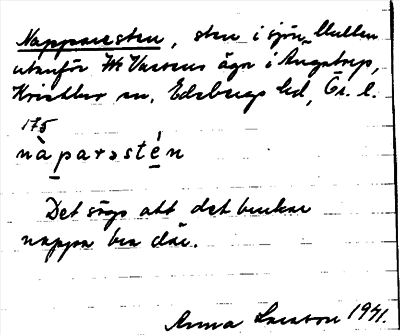 Napparesten, sten i sjön Mullen
utanför Hs Vassens ägor i Ängatorp,
Hackvad sn, Edsbergs hd, Ör. l.
175
nàparsstén
Det sägs att det brukar
nappa bra där.
Anna Larsson 1941.